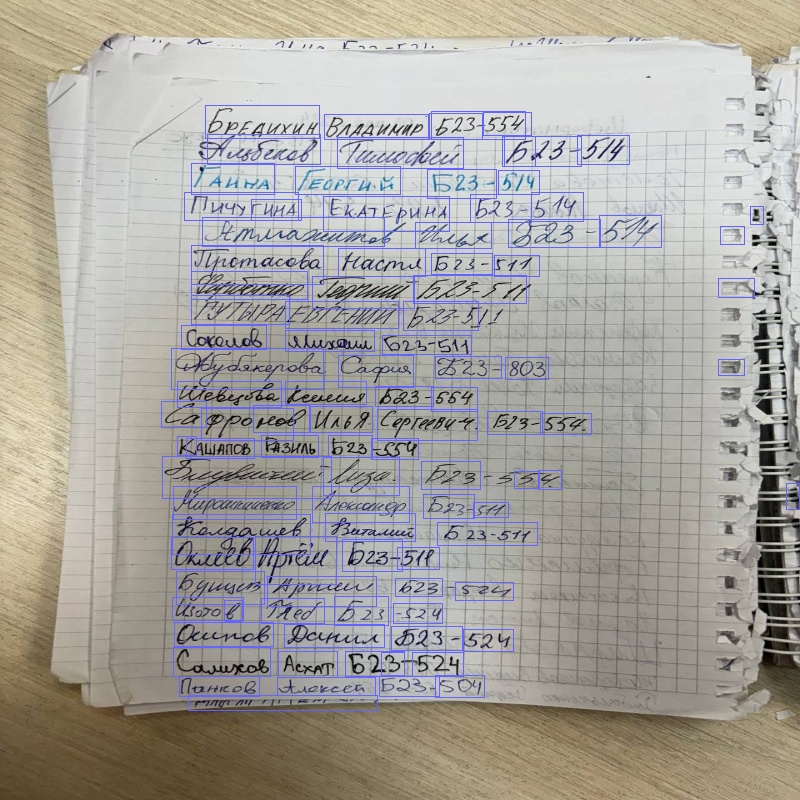 Бредихин Владимир Б23-554
Альбеков Тимофей Б23-514
Ганна Георгий Б23-514
Пичугина Екатерина Б23-514
Илья Б23-514
Протасова Настя Б23-511
Горбатко Георгий Б23-511
Гутыра Евгений Б23-511
Соколов Михаил Б23-511
Абубякерова Сафия Б23-803
Шевцова Ксения Б23-554
Сафронов Илья Сергеевич. Б23-554.
Кашапов Разиль Б23-554
Лиза. Б23-554
Мирошниченко Александр Б23-511
Колдашев Виталий Б23-511
Оклеев Артём Б23-511
Артем Б23-524
Изотов Глеб Б23-524
Осипов Данил Б23-524
Салихов Асхат Б23-524
Панков Алексей Б23-504